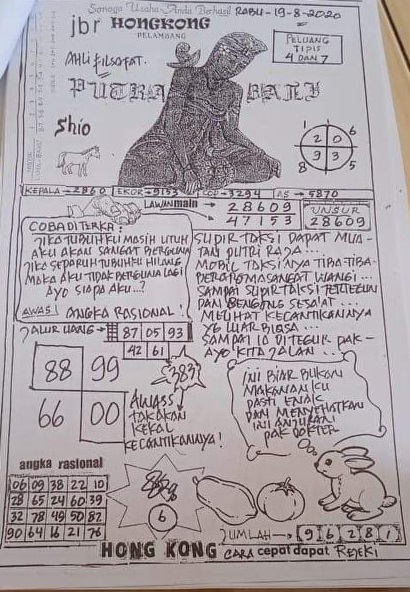 Semoga Usaha Anda Berhasil RABU-19-8-2020
jbr HONGKONG
PELAMBANG
AHLI FILSAFAT.
PELUANG
TIPIS
4 DAN 7
PUTRA BALI
Shio
1 6
2 0
9 3
8 5
KEPALA → 2860 EKOR → 9153 COP → 3294 AS → 5870
LAWAN main → 28609
→ 47153
UNSUR
28609
COBA DITERKA:
JIKA TUBUHKU MASIH UTUH
AKU AKAN SANGAT BERGUNA
JIKA SEPARUH TUBUHKU HILANG
MAKA AKU TIDAK BERGUNA LAGI
AYO SIAPA AKU...?
AWAS! ANGKA RASIONAL!
SUPIR TAKSI DAPAT MUA-
TAN PUTRI RAJA...
MOBIL TAKSINYA TIBA-TIBA-
BERAROMASANGAT WANGI...
SAMPAI SUPIR TAKSI TERTEGUN
DAN BENGONG SESAAT...
MELIHAT KECANTIKANNYA
YG LUAR BIASA...
SAMPAI IA DI TEGUR PAK-
AYO KITA JALAN...
JALUR UANG → 87 05 93
42 61
88 99
66 00
383?
AWASS
TAK AKAN
KEKAL
KECANTIKANNYA!
INI BIAR BUKAN
MAKANAN KU
PASTI ENAK
DAN MENYEHATKAN
INI ANJURAN
PAK DOKTER
angka rasional
06 09 38 22 10
28 65 24 60 39
32 78 49 50 82
90 64 16 21 76
6
JUMLAH → 9 6 2 8 1
HONG KONG CARA cepat dapat REJEKI